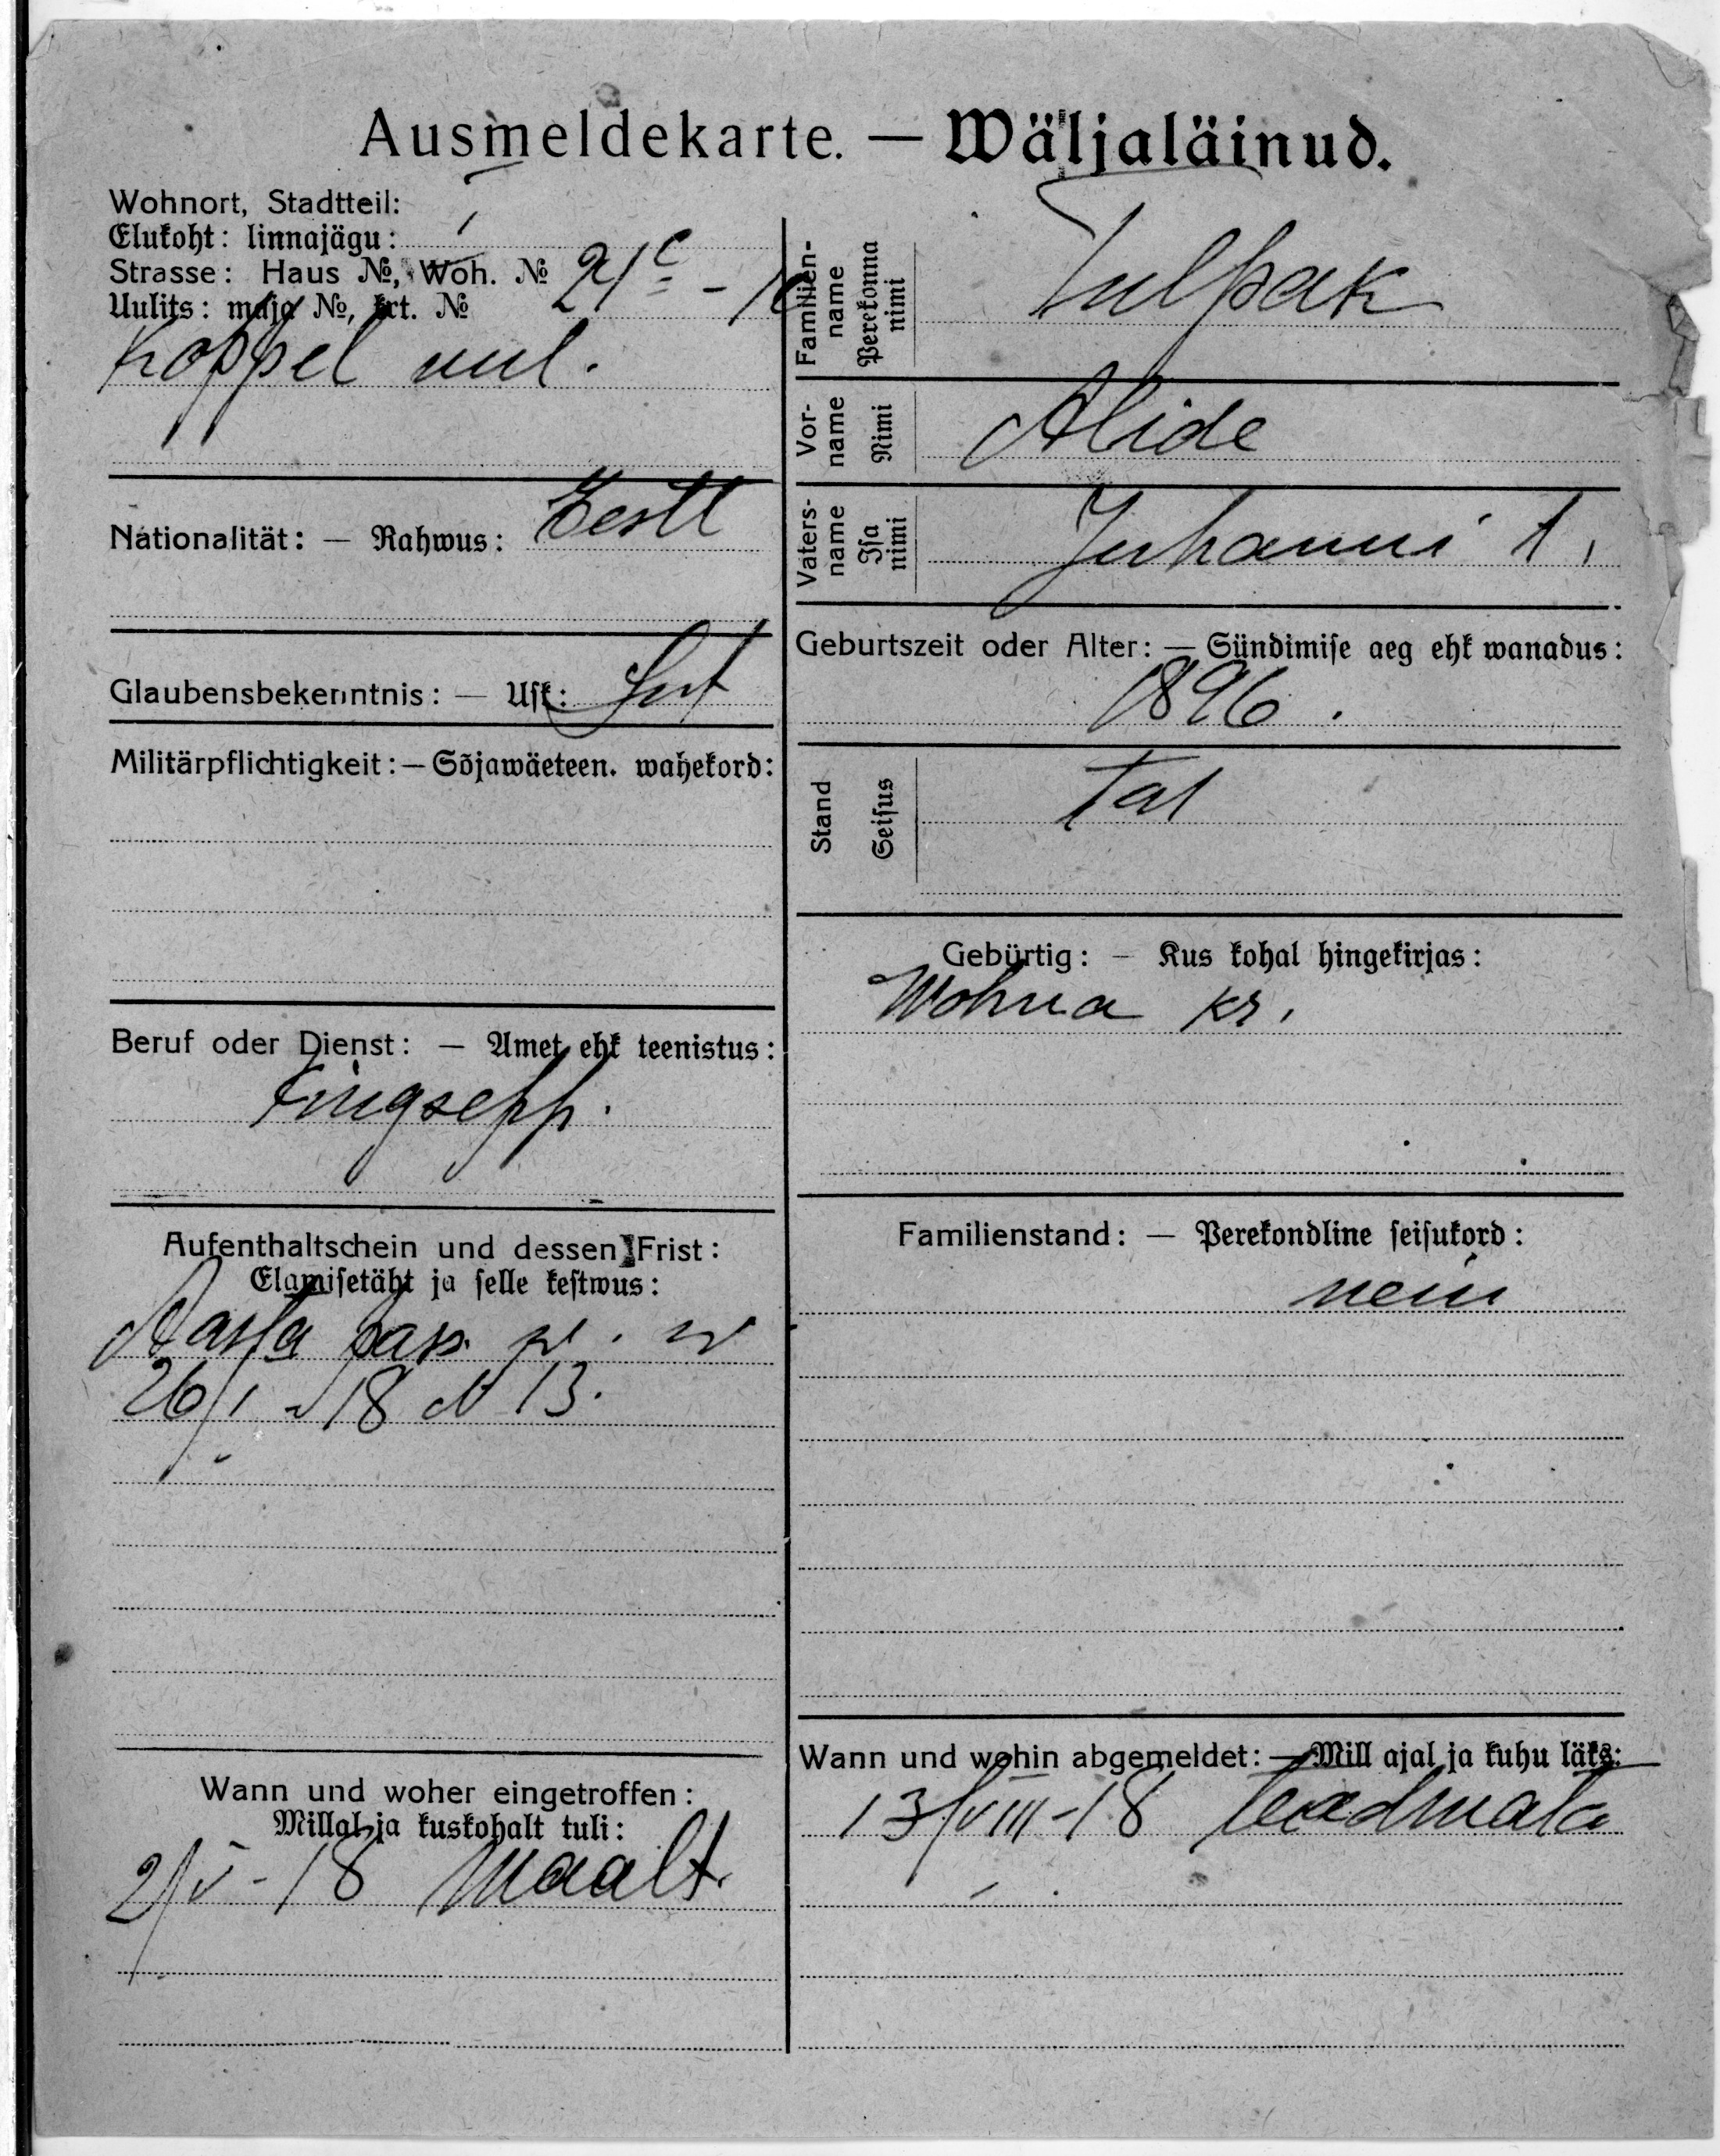 Ausmeldekarte. — Wäljaläinud.
Wohnort, Stadtteil:
Elukoht: linnajägu: I
Strasse: Haus №, Woh. №
Uulits: maja №, krt. № 21c - 10
Koppel uul.
Nationalität: — Rahwus: Eestl
Glaubensbekenntnis: — Usk: Lut
Militärpflichtigkeit: — Sõjawäeteen. wahekord:
Beruf oder Dienst: — Amet ehk teenistus:
Kingsepp.
Aufenthaltschein und dessen Frist:
Elamisetäht ja selle kestwus:
Aasta pass w. w
26/I 18 № 13.
Wann und woher eingetroffen:
Millal ja kuskohalt tuli:
2/V - 18 Maalt.
Familien-
name
Perekonna
nimi
Tulpak
Vor-
name
Nimi
Alide
Vaters-
name
Isa
nimi
Juhanni t,
Geburtszeit oder Alter: — Sündimise aeg ehk wanadus:
1896.
Stand
Seisus
Tal
Gebürtig: — Kus kohal hingekirjas:
Wohna kr.
Familienstand: — Perekondline seisukord:
nein
Wann und wohin abgemeldet: — Mill ajal ja kuhu läks:
13/VIII-18 teadmata